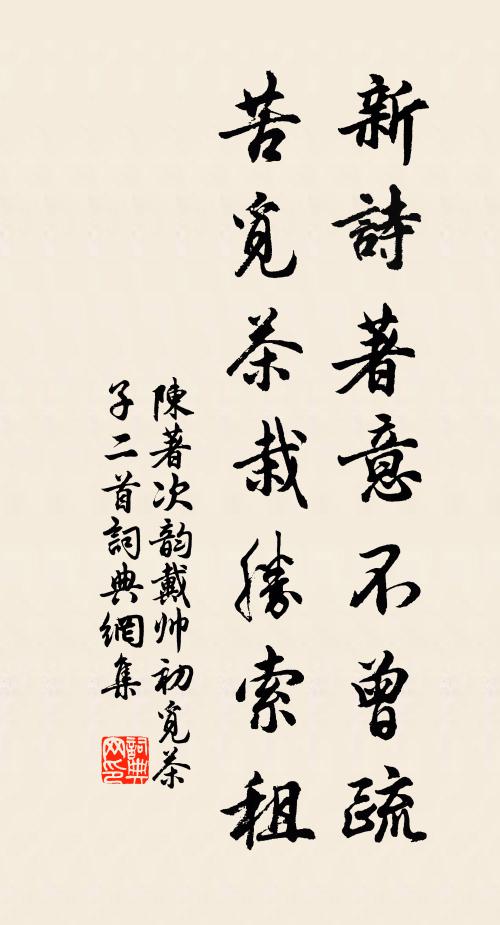 新詩著意不曾疏
苦覓茶栽勝索租
陳著次韵戴帅初覓茶
子二首詞典網集
詞典网印